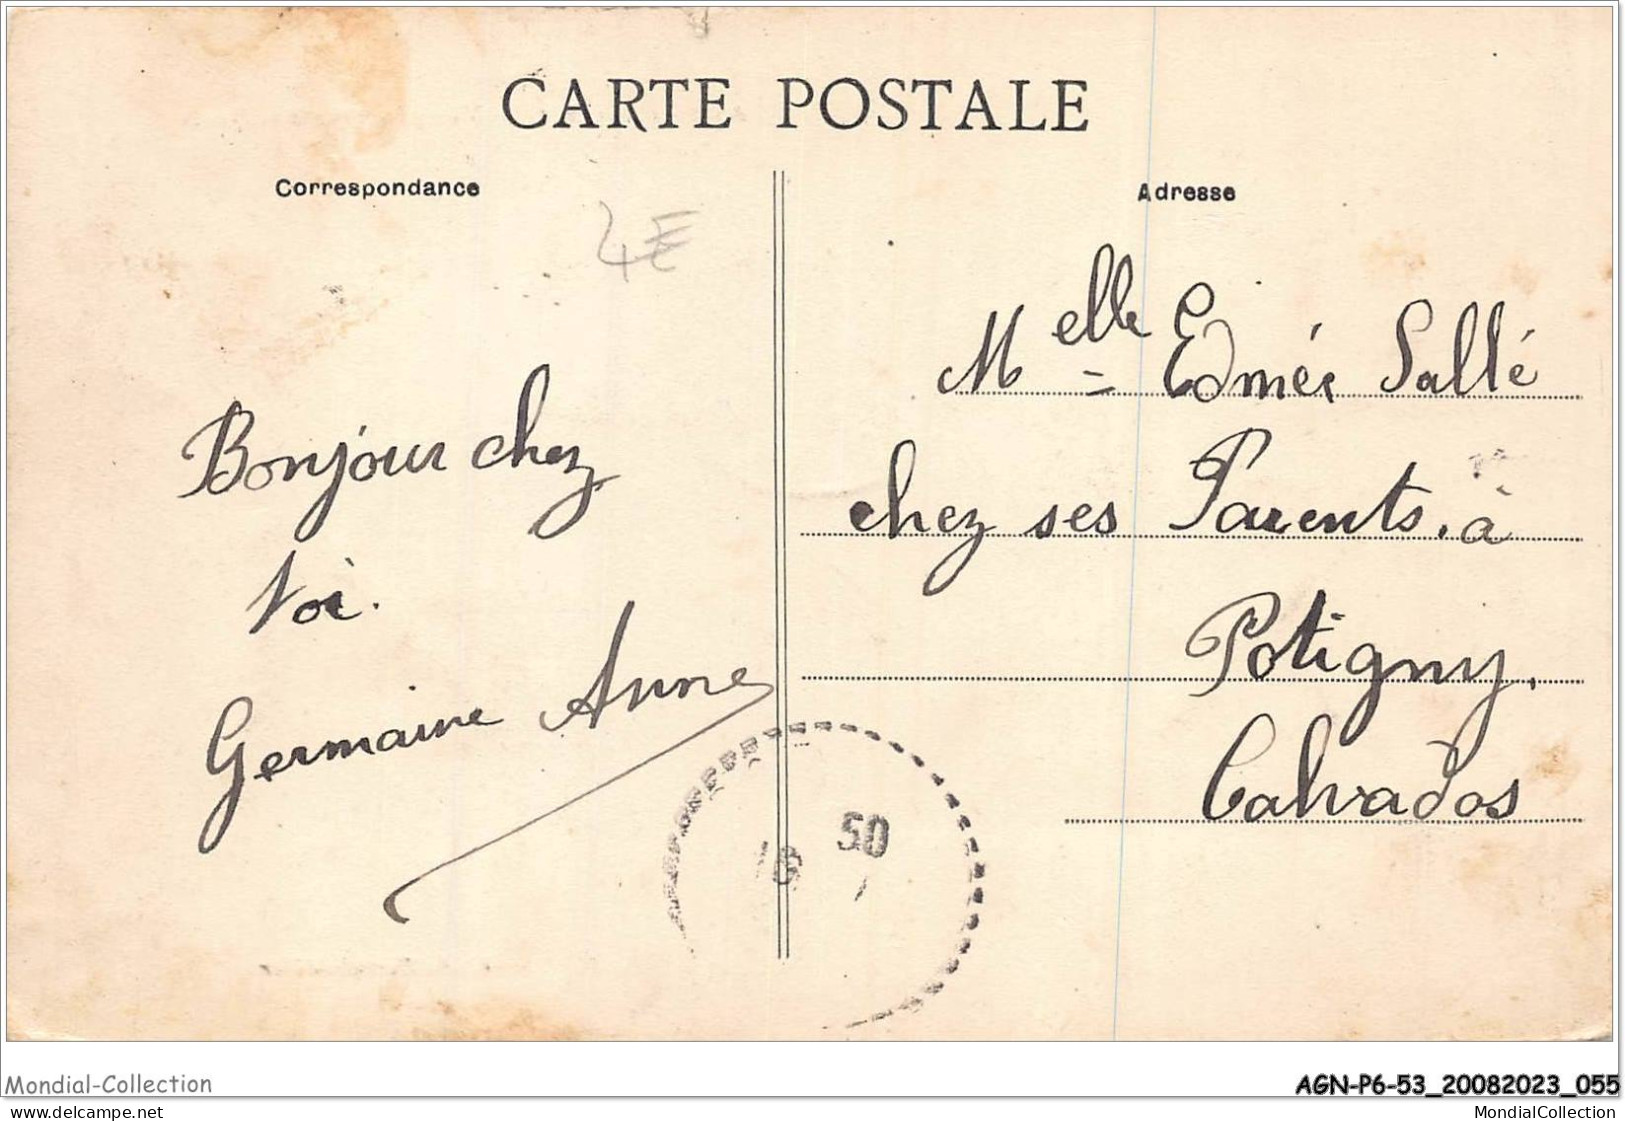 CARTE POSTALE
Correspondance
4€
Bonjour chez
toi.
Germaine Anne
Adresse
Melle Edmée Sallé
chez ses Parents. à
Potigny,
Calvados
16 50
Mondial-Collection
delcampe.net
AGN-P6-53_20082023_055
MondialCollection